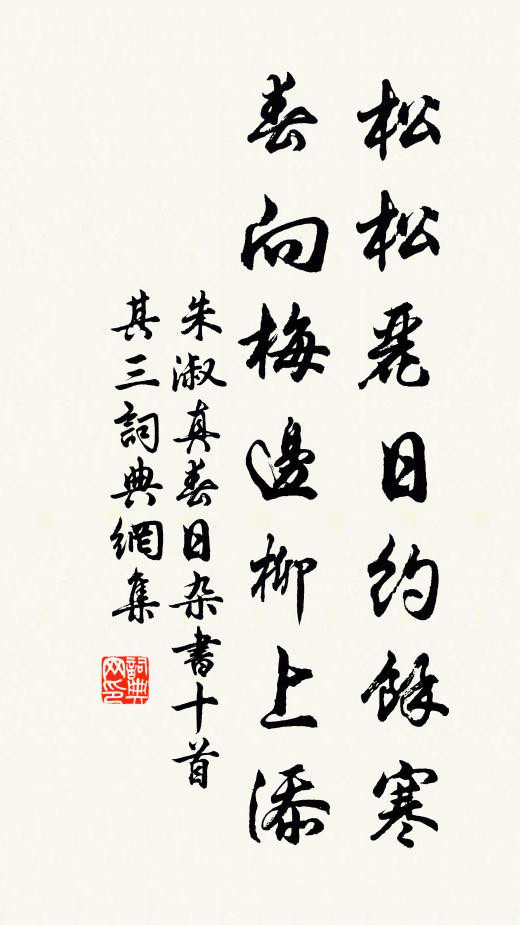 松松麗日約餘寒
春向梅邊柳上添
朱淑真春日杂書十首
其三詞典網集
詞典網印